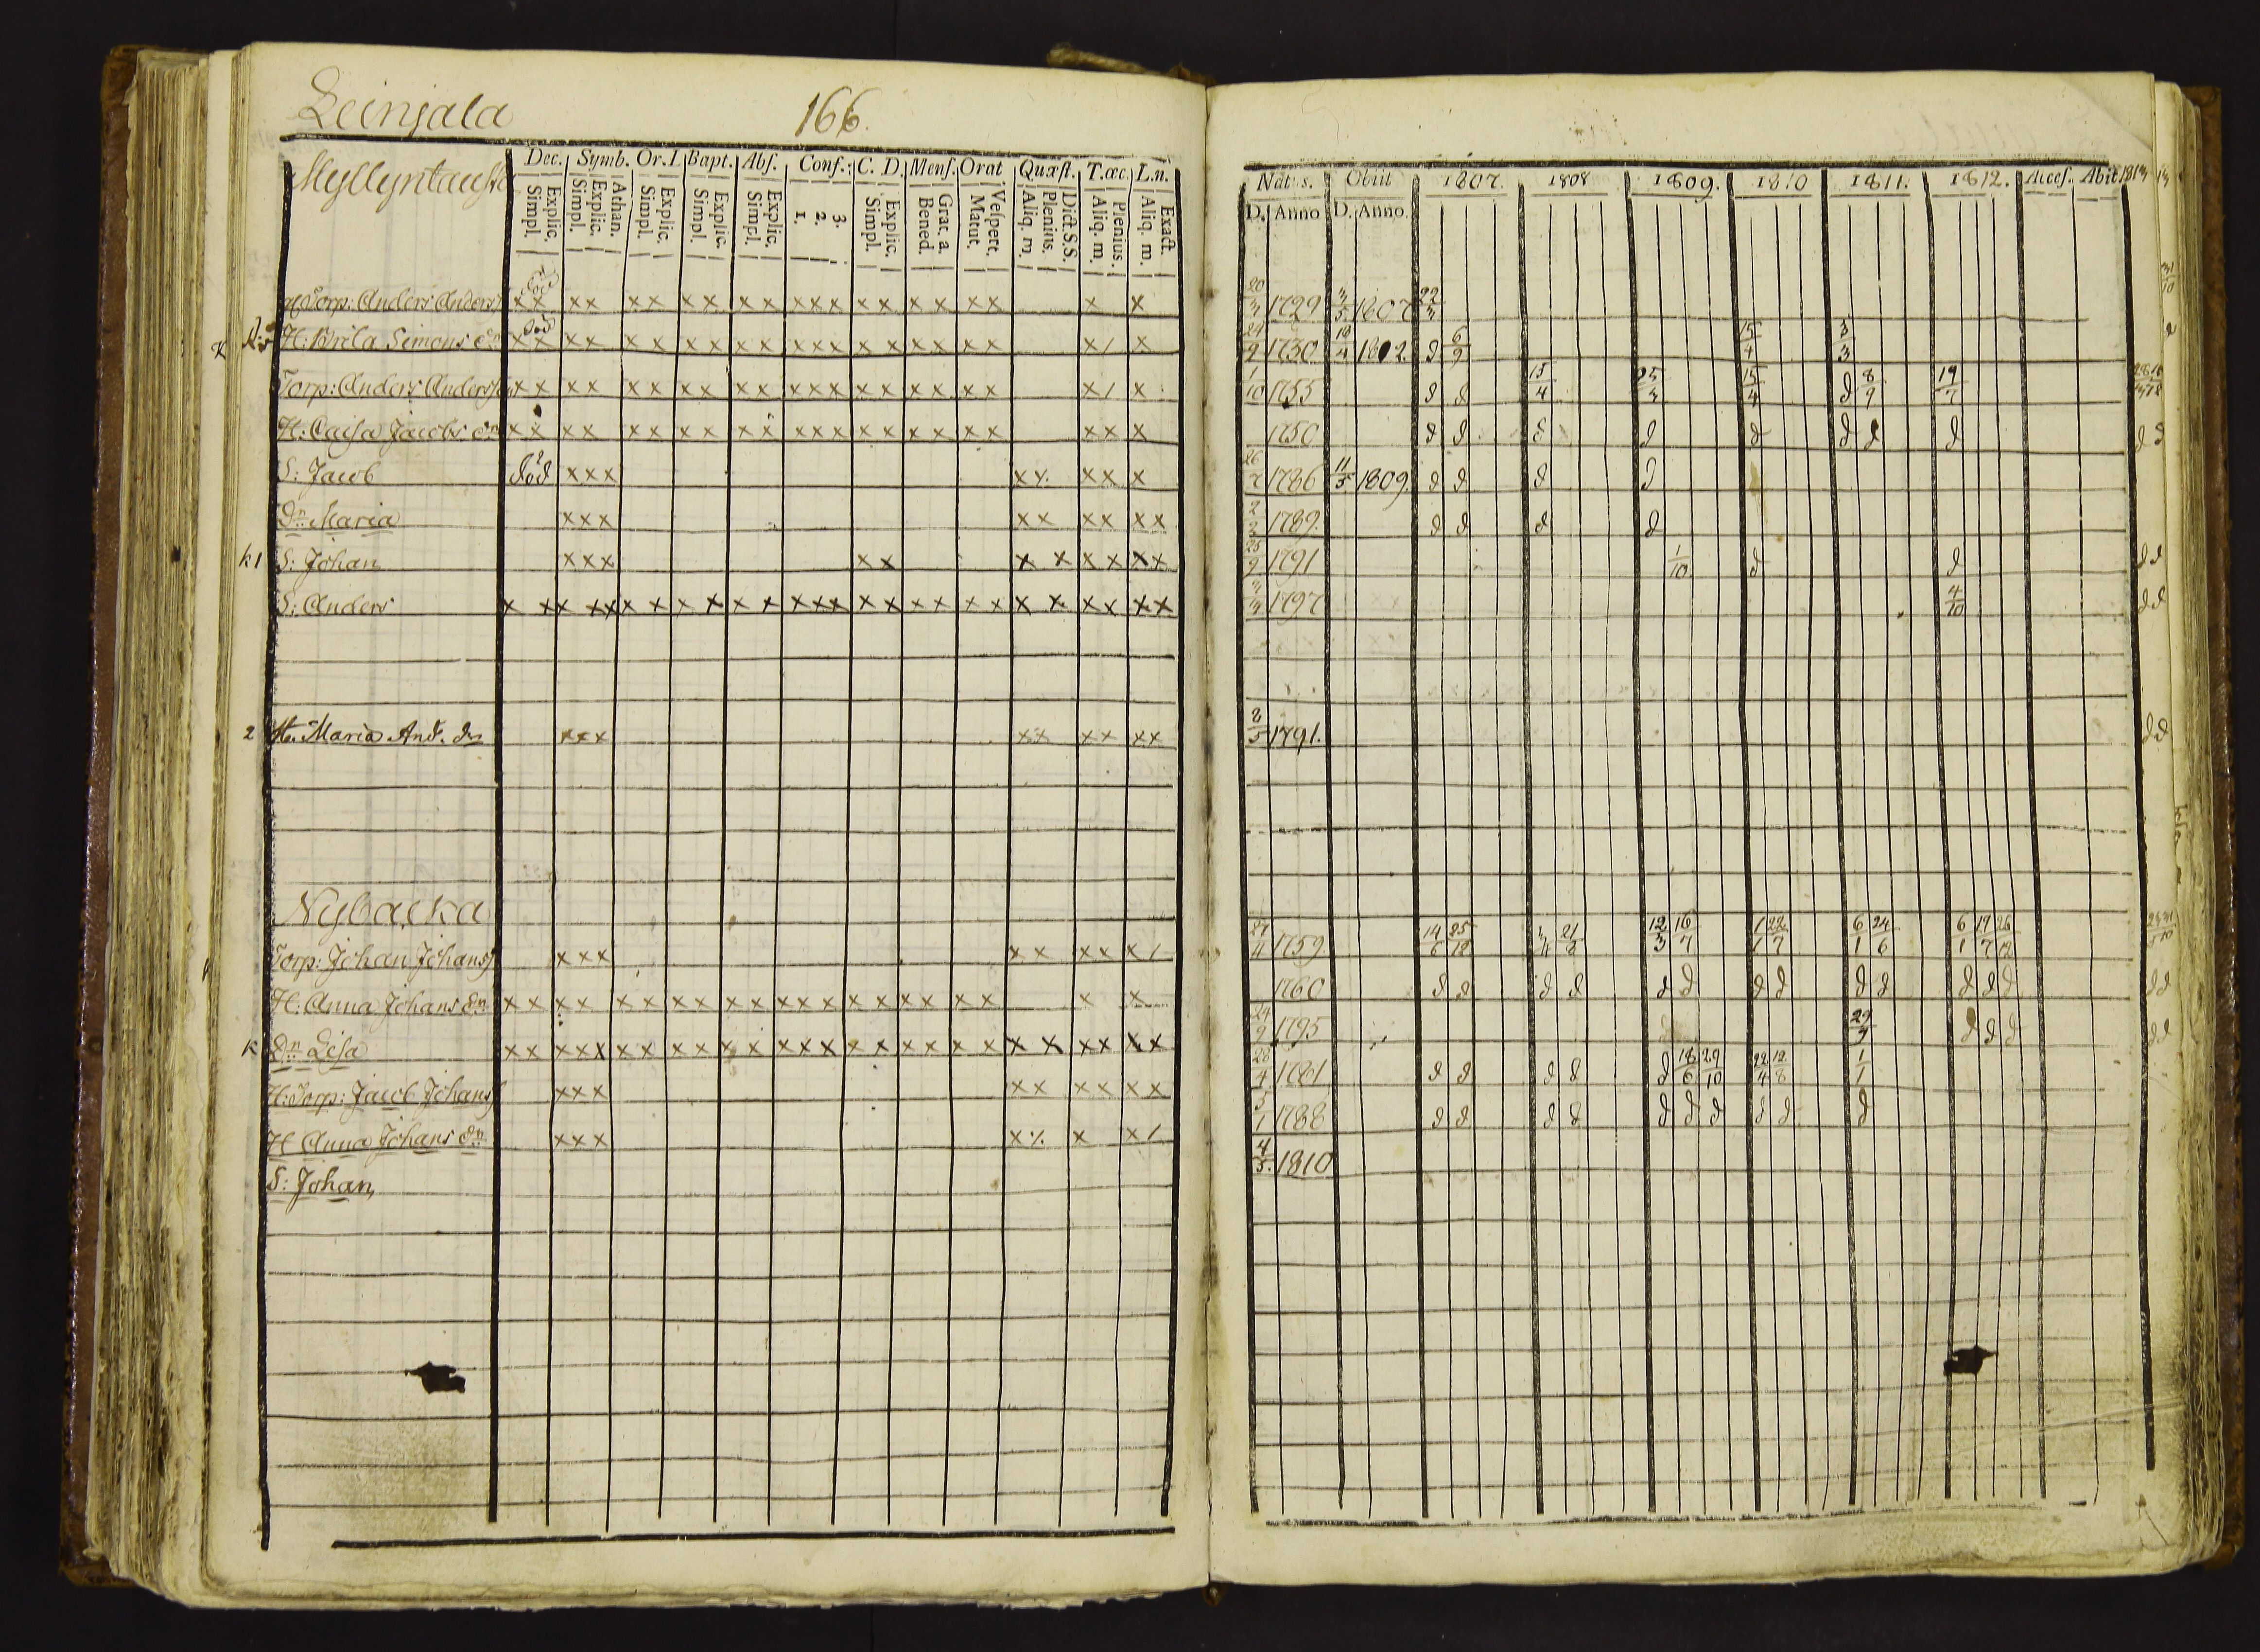 Leinjala 166.
Myllyntausta
Dec. Symb. Or. I. Bapt. Abs. Conf. C. D. Mens. Orat Quæst. T.æc. L.n.
Explic. Simpl. Athan. Explic. Simpl. Explic. Simpl. Explic. Simpl. Explic. Simpl. 3. 2. 1. Explic. Simpl. Grat. a. Bened. Vespert. Matut. Dict. S.S. Plenius. Aliq. m. Plenius. Aliq. m. Exact. Aliq. m.
Torp: Anders Anders död xx xx xx xx xx xxx xx xx xx x x
H: Brita Simons dr död xx xx xx xx xx xxx xx xx xx x/ x
Torp: Anders Anders xx xx xx xx xx xxx xx xx xx x/ x
H: Caisa Jacobs dr xx xx xx xx xx xxx xx xx xx xx x
S: Jacob död xxx xx xx x
Dr Maria xxx xx xx xx
k1 S: Johan xxx xx x x xx xx
S: Anders x x x xx x x x x x x xxx xx xx xx x x xx xx
2 H. Maria And. dr xxx xx xx xx
Nybacka
Torp: Johan Johans xxx xx xx x/
H: Anna Johans dr xx xx xx xx xx xxx xx xx xx x x
k Dr Lisa xx xxx xx xx xx xxx xx xx xx xx xx xx
H: Torp: Jacob Johans xxx xx xx xx
H Anna Johans dr xxx x x x/
S: Johan
Natus. Obiit 1807. 1808 1809. 1810 1811. 1812. Acces. Abiit. 1813
D. Anno D. Anno.
20/3 1729 3/5 1807 22/3
24/9 1730 10/4 1812. d 6/9 15/4 3/3
1/10 1755 d d 15/4 25/3 15/4 d 8/9 19/7
1750 d d d d d d d d d d
26/7 1786 11/5 1809. d d d d
2/2 1789. d d d d
25/9 1791 1/10 d d d d
3/3 1797 4/10 d d
8/5 1791. d d
27/4 1759. 14/6 25/12 3/4 21/8 12/3 16/7 1/1 22/7 6/1 24/6 6/1 19/7 26/12
1760 d d d d d d d d d d d d d d d
24/9 1795 29/9 d d d d d
28/4 1781 d d d d d 18/6 29/10 22/4 12/8 1/1
5/1 1788 d d d d d d d d d d
4/5. 1810